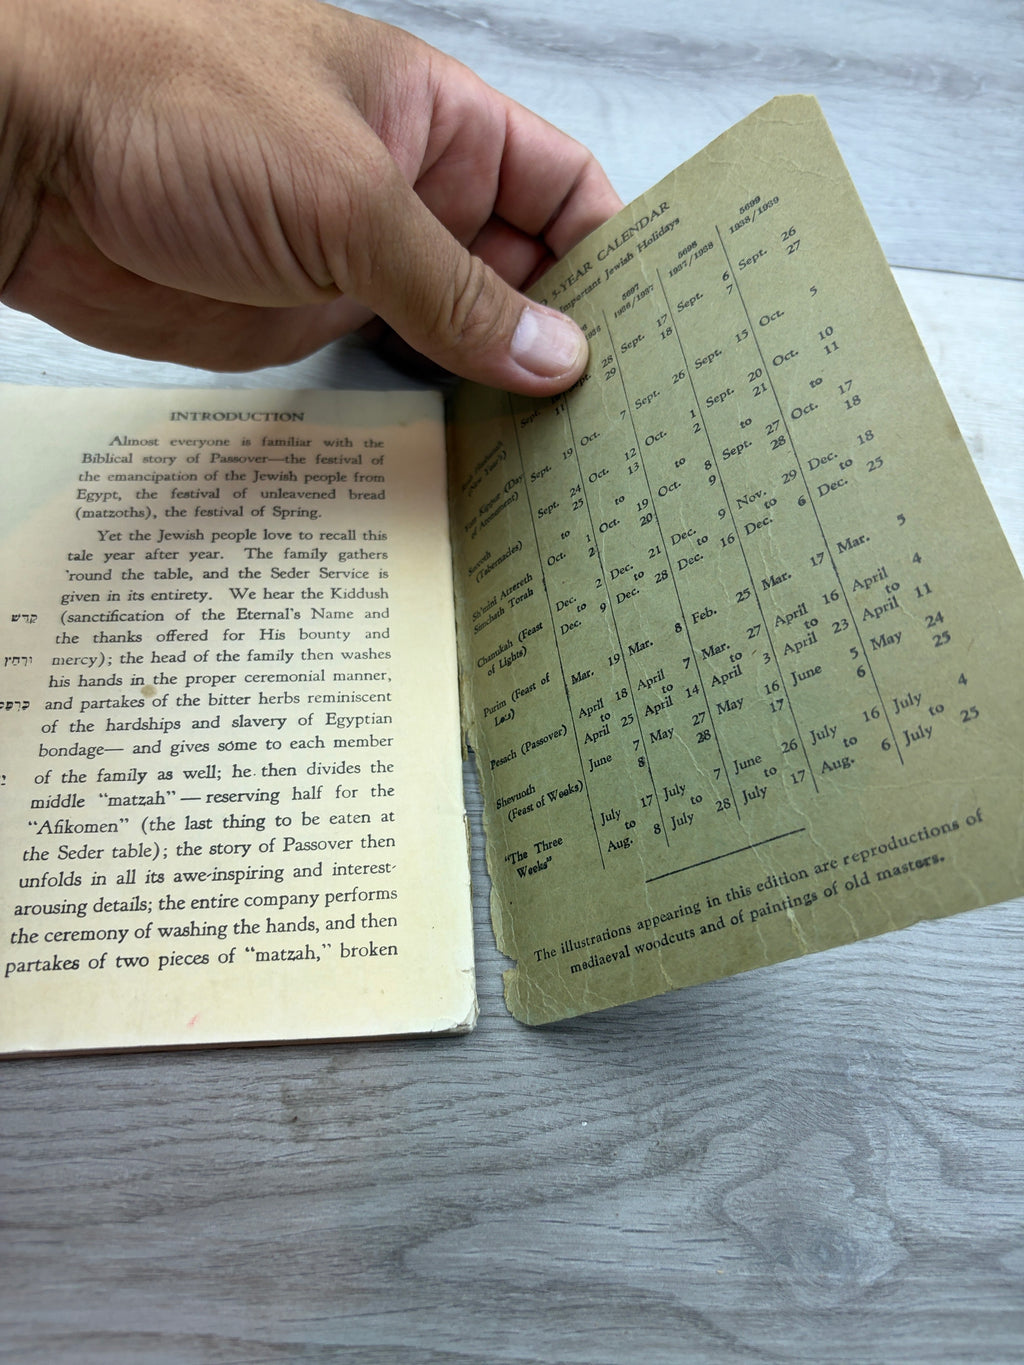 INTRODUCTION
Almost everyone is familiar with the
Biblical story of Passover—the festival of
the emancipation of the Jewish people from
Egypt, the festival of unleavened bread
(matzoths), the festival of Spring.
Yet the Jewish people love to recall this
tale year after year. The family gathers
'round the table, and the Seder Service is
given in its entirety. We hear the Kiddush
קדש (sanctification of the Eternal's Name and
the thanks offered for His bounty and
ורחץ mercy); the head of the family then washes
his hands in the proper ceremonial manner,
and partakes of the bitter herbs reminiscent
of the hardships and slavery of Egyptian
bondage— and gives some to each member
of the family as well; he then divides the
middle “matzah” — reserving half for the
“Afikomen” (the last thing to be eaten at
the Seder table); the story of Passover then
unfolds in all its awe-inspiring and interest-
arousing details; the entire company performs
the ceremony of washing the hands, and then
partakes of two pieces of “matzah,” broken
5-YEAR CALENDAR
Important Jewish Holidays
5697 5698 5699
1936/1937 1937/1938 1938/1939
Rosh Hashanah Sept. 28 Sept. 17 Sept. 6 Sept. 26
(New Year's) 11 29 18 7 27
Yom Kippur (Day Sept. 19 Oct. 7 Sept. 26 Sept. 15 Oct. 5
of Atonement)
Succoth Sept. 24 Oct. 12 Oct. 1 Sept. 20 Oct. 10
(Tabernacles) 25 13 2 21 11
to to to to to
Sh'mini Atzereth Oct. 1 Oct. 19 Oct. 8 Sept. 27 Oct. 17
Simchath Torah 2 20 9 28 18
Chanukah (Feast Dec. 2 Dec. 21 Dec. 9 Nov. 29 Dec. 18
of Lights) to to to to to
Dec. 9 Dec. 28 Dec. 16 Dec. 6 Dec. 25
Purim (Feast of Mar. 19 Mar. 8 Feb. 25 Mar. 17 Mar. 5
Lots)
Pesach (Passover) April 18 April 7 Mar. 27 April 16 April 4
to to to to to
April 25 April 14 April 3 April 23 April 11
Shevuoth June 7 May 27 May 16 June 5 May 24
(Feast of Weeks) 8 28 17 6 25
“The Three July 17 July 7 June 26 July 16 July 4
Weeks” to to to to to
Aug. 8 July 28 July 17 Aug. 6 July 25
The illustrations appearing in this edition are reproductions of
mediaeval woodcuts and of paintings of old masters.